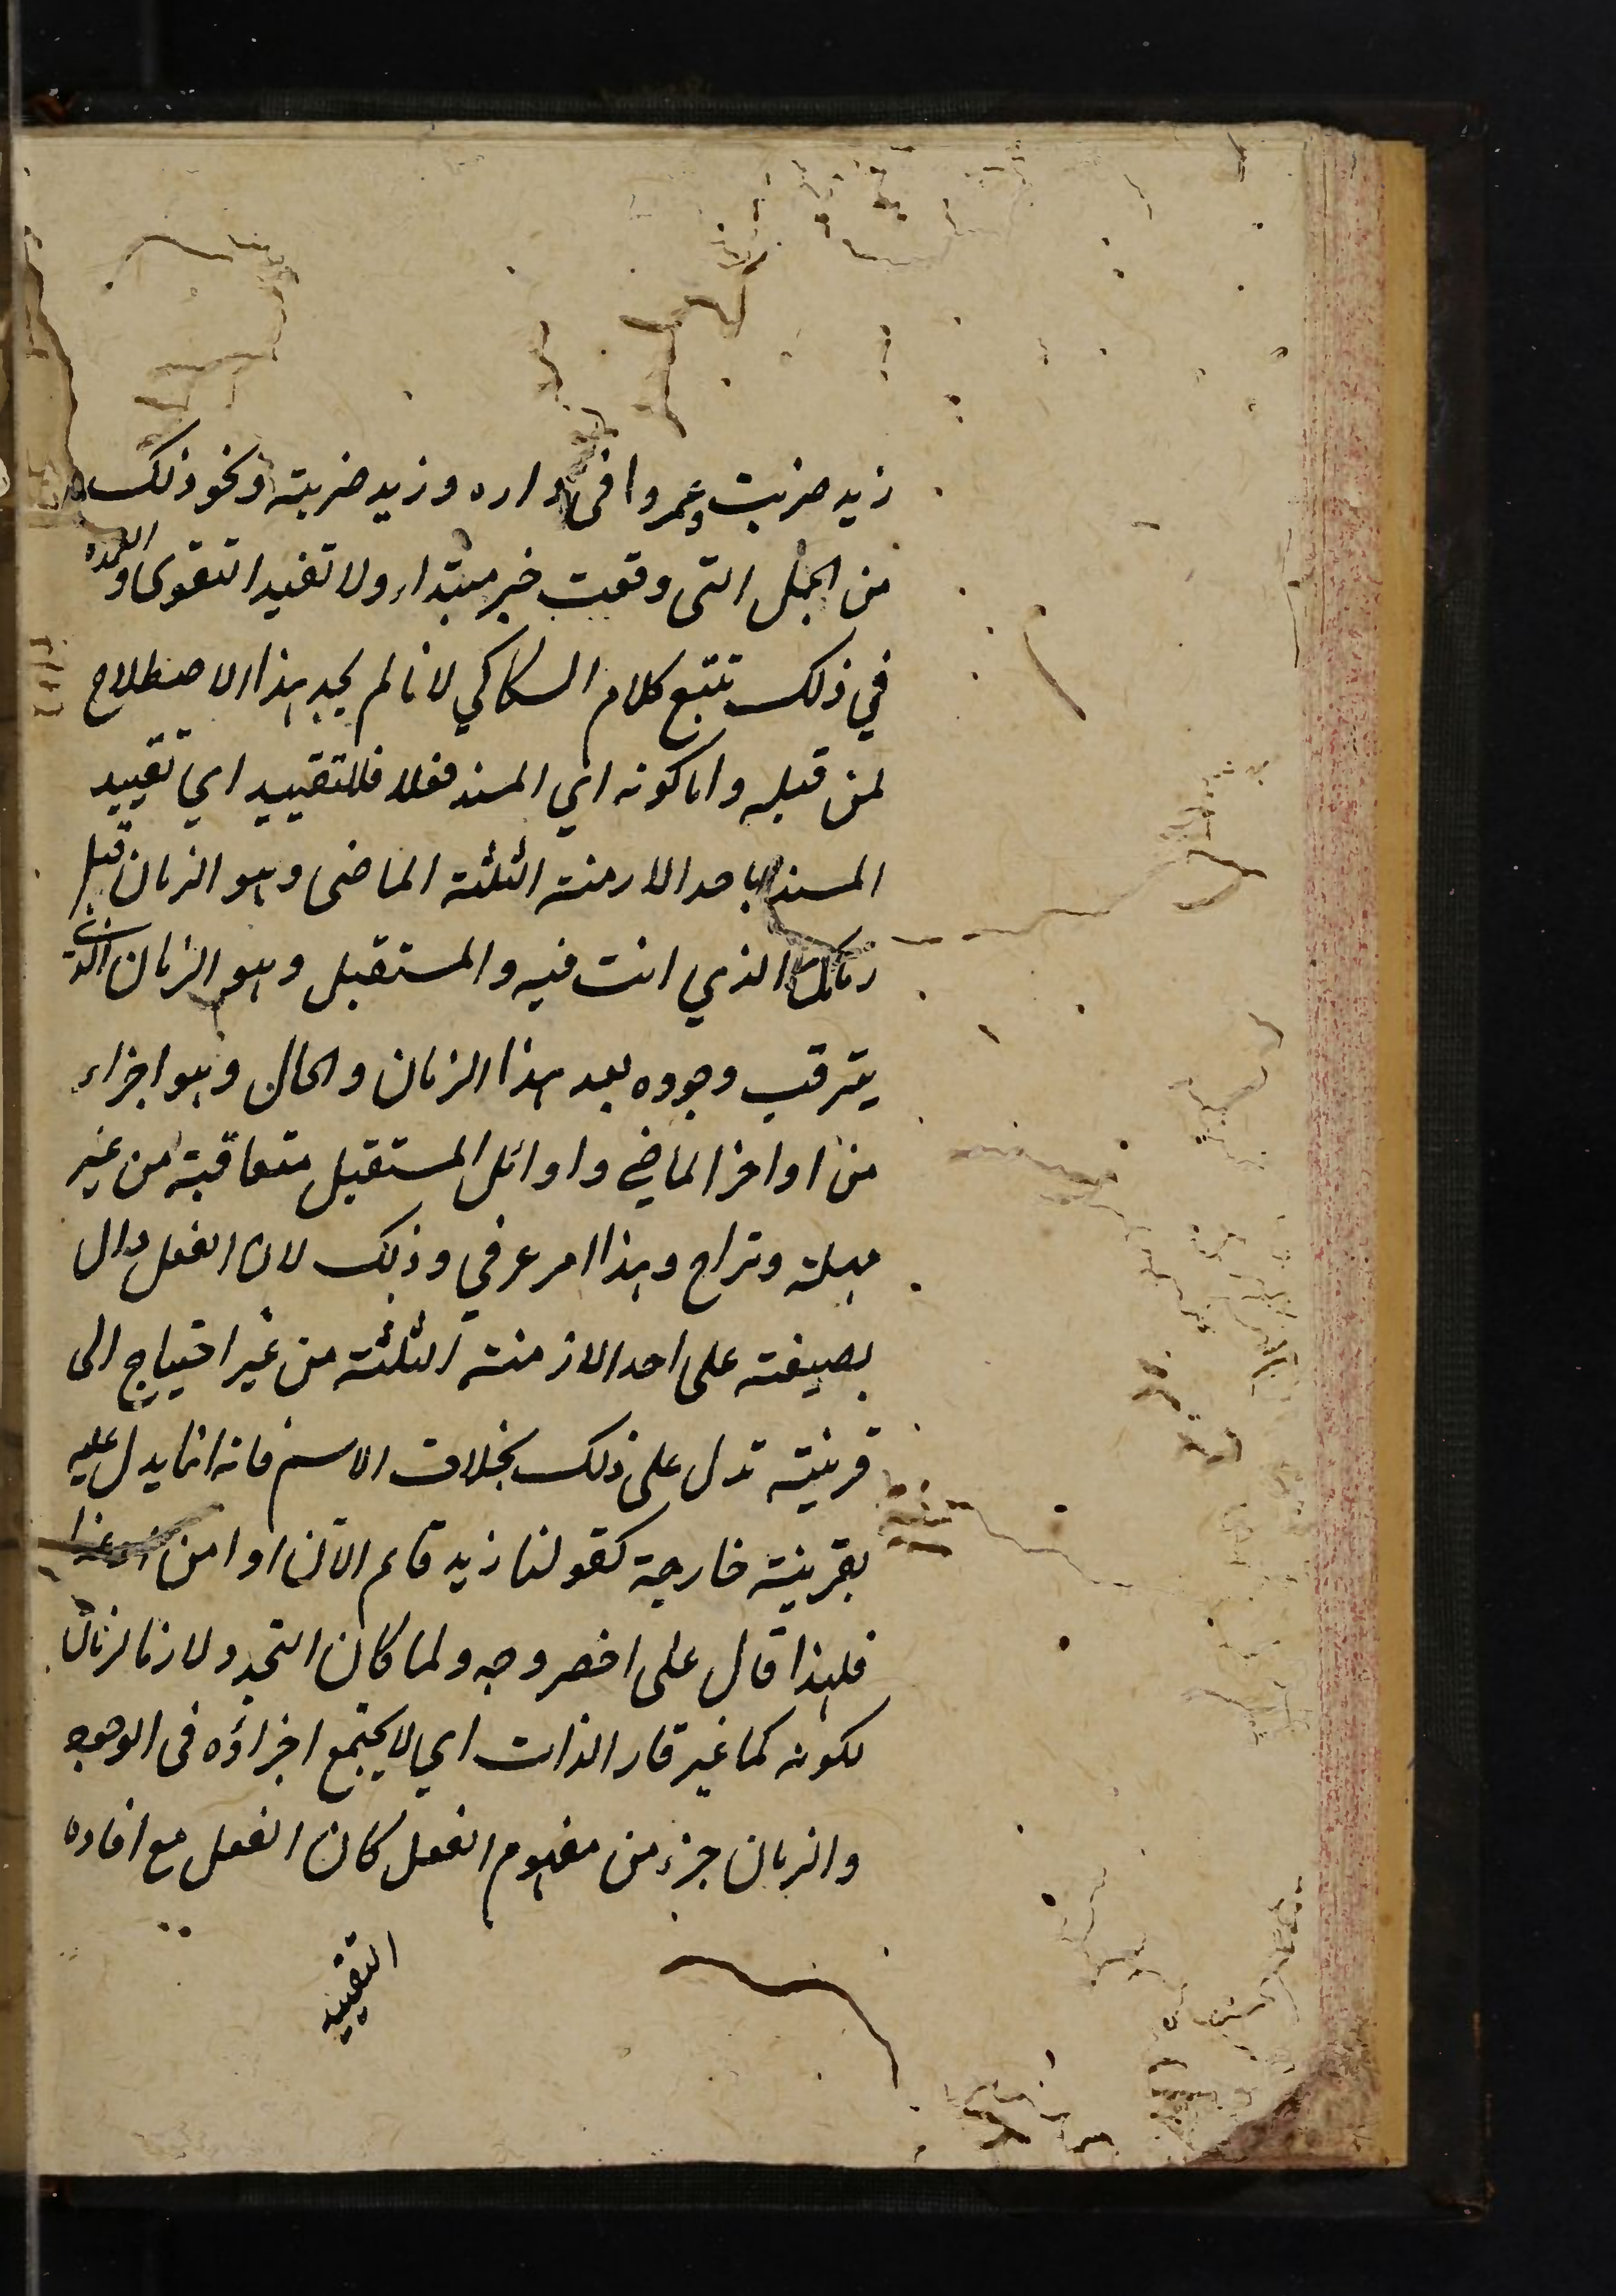 زيد ضربت وعمروا فى داره وزيد ضربته ونحو ذلك
من الجمل التى وقعت خبر مبتداء ولا تفيد التقوى والعمدة
في ذلك تتبع كلام السكاكي لانا لم نجد هذا الاصطلاح
لمن قبله واما كونه اي المسند فعلا فللتقييد اي تقييد
المسند باحد الازمنة الثلثة الماضى وهو الزمان قبل
زمانك الذي انت فيه والمستقبل وهو الزمان الذى
يترقب وجوده بعد هذا الزمان والحال وهو اجزاء
من اواخر الماضي واوائل المستقبل متعاقبة من غير
مهلة وتراخ وهذا امر عرفي وذلك لان الفعل دال
بصيغته على احد الازمنة الثلثة من غير احتياج الى
قرينة تدل على ذلك بخلاف الاسم فانه انما يدل عليه
بقرينة خارجة كقولنا زيد قائم الآن او امس او غدا
فلهذا قال على اخصر وجه ولما كان التجدد لازما لزمان
لكونه كما غير قار الذات اي لا يجتمع اجزاؤه فى الوجود
والزمان جزء من مفهوم الفعل كان الفعل مع افاده
التقييد